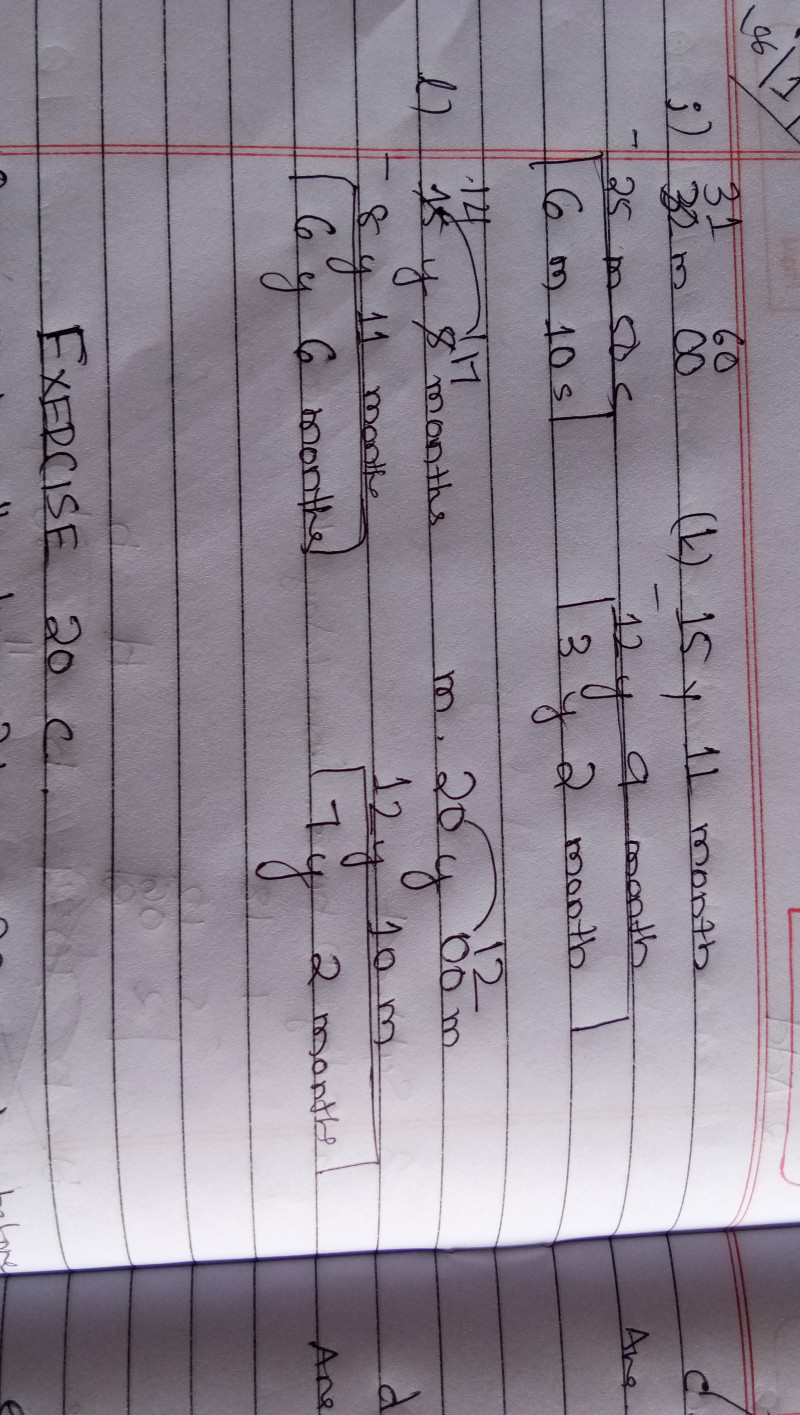 31 60
j) 32 m 00 (k) 15 y 11 month
- 25 m s - 12 y 9 month
6 m 10 s 3 y 2 month
14 17 12
l) 15 y 8 months m. 20 y 00 m
- 8 y 11 months 12 y 10 m
6 y 6 months 7 y 2 months
EXERCISE 20 C.
Ans
d
Ans